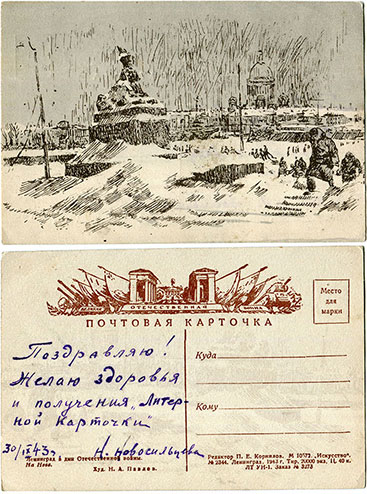 ВЕЛИКАЯ ОТЕЧЕСТВЕННАЯ ВОЙНА
ПОЧТОВАЯ КАРТОЧКА
Место
для
марки
Поздравляю!
Желаю здоровья
и получения „Литер-
ной карточки"
Н. Новосильцева
Куда
Кому
Ленинград в дни Отечественной войны.
На Неве.
Худ. Н. А. Павлов.
Редактор П. Е. Корнилов. М 10573. „Искусство".
№ 2344. Ленинград. 1943 г. Тир. 20000 экз. Ц. 40 к.
ЛТ УН-1. Заказ № 3273